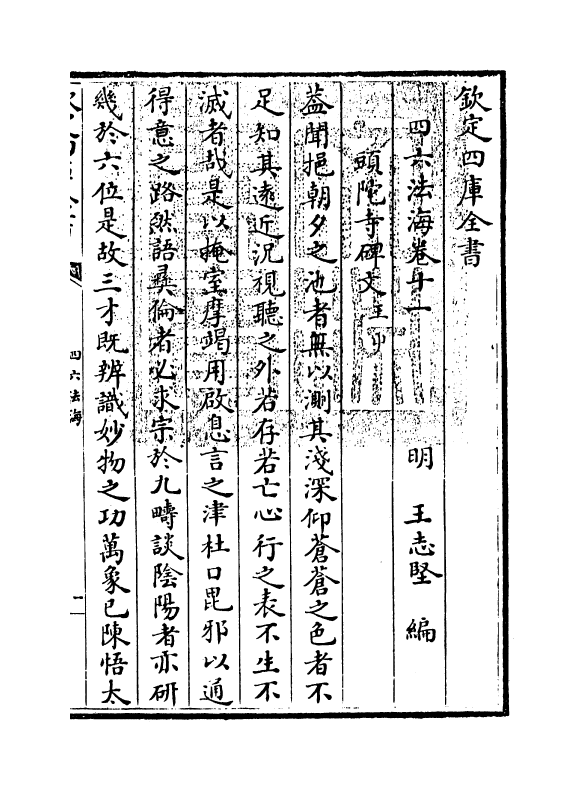 欽定四庫全書
四六法海卷十一
明 王志堅 編
頭陀寺碑文王巾
葢聞挹朝夕之池者無以測其淺深仰蒼蒼之色者不
足知其遠近況視聽之外若存若亡心行之表不生不
滅者哉是以掩室摩竭用啟息言之津杜口毘邪以通
得意之路然語彞倫者必求宗於九疇談陰陽者亦研
幾於六位是故三才既辨識妙物之功萬象已陳悟太
四六法海
一